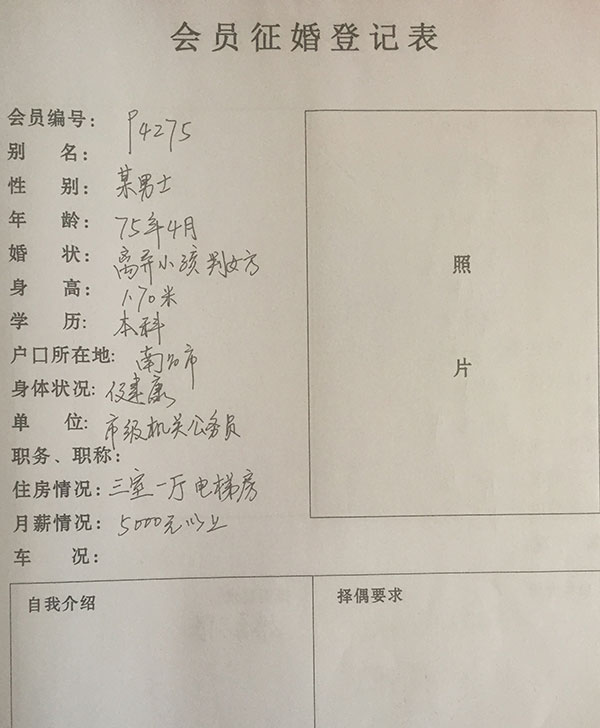 会员征婚登记表
会员编号: P4275
别 名:
性 别: 某男士
年 龄: 75年4月
婚 状: 离异小孩判女方
身 高: 1.70米
学 历: 本科
户口所在地: 南 市
身体状况: 健康
单 位: 市级机关公务员
职务、职称:
住房情况: 三室一厅电梯房
月薪情况: 5000元以上
车 况:
照
片
自我介绍
择偶要求